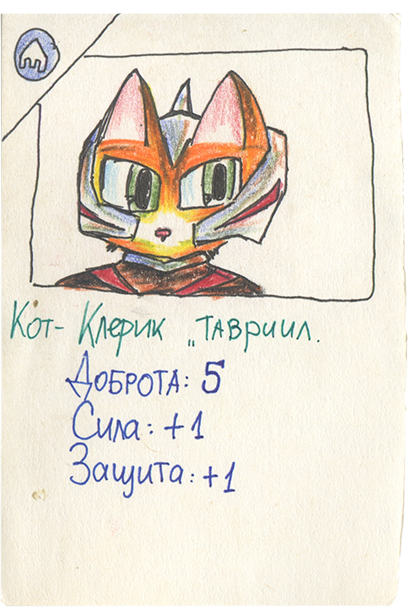 Кот-Клерик „Тавриил.
Доброта: 5
Сила: +1
Защита: +1